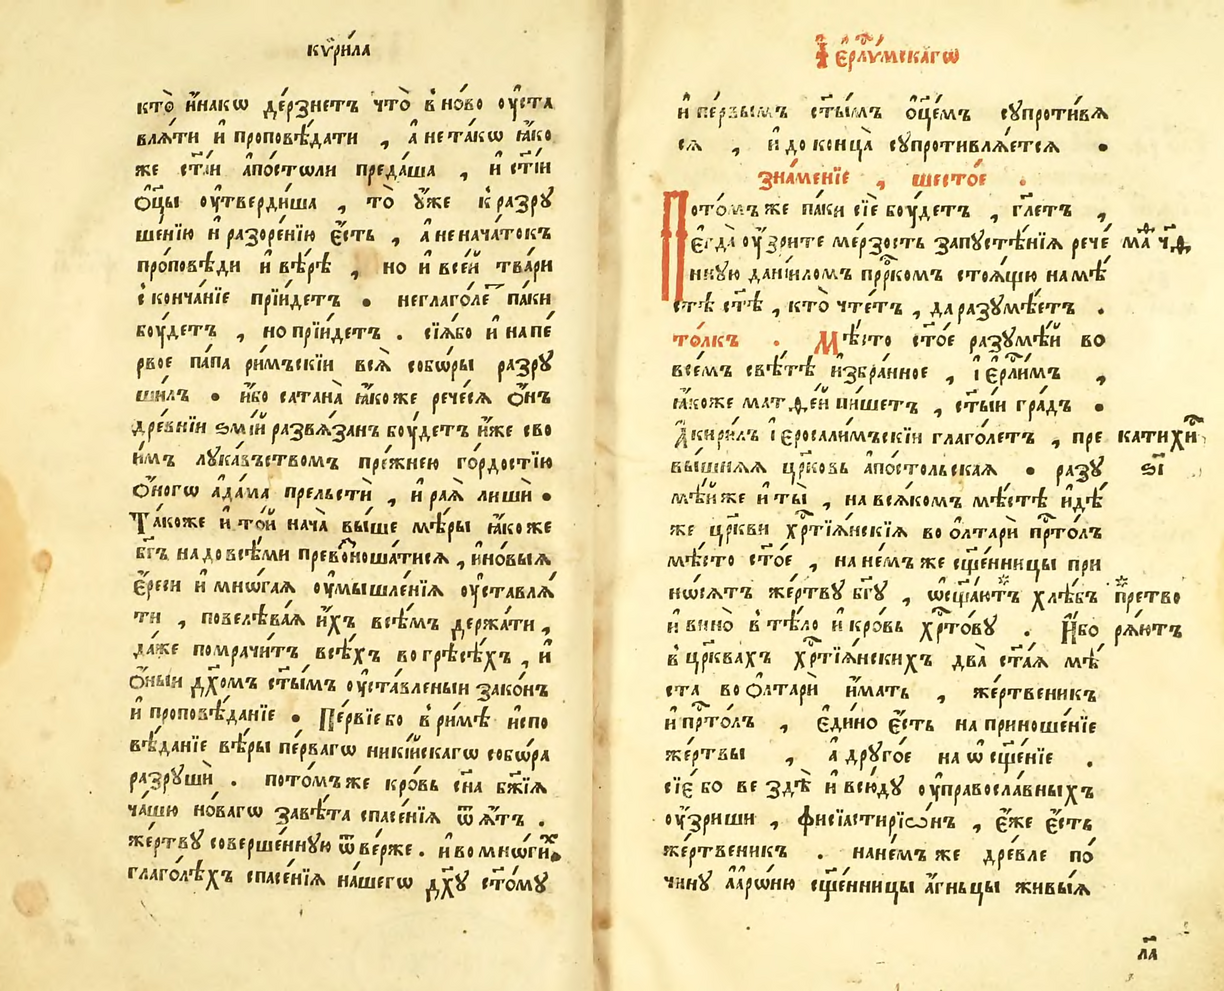 кѷри́ла
кто̀ и҆́накѡ де́рзнетъ что̀ в̾ но́во оу҆ста
влѧ́ти и҆ проповѣ́дати , а҆ не та́кѡ ꙗ҆́ко
же ст҃і́и а҆по́столи преда́ша , и҆ ст҃і́и
ѻ҆ц҃ы оу҆тверди́ша , то̀ оу҆́же к̾ разрꙋ
ше́нїю и҆ разоре́нїю є҆́сть , а҆ не нача́токъ
про́повѣди и҆ вѣ́рѣ , но и҆ все́й тва́ри
с̾конча́нїе прїи́детъ • не глаго́ле па́ки
боу́детъ , но прїи́детъ . сїѧ́ бо и҆ на пе́
рвое па́па ри́мъскїи всѧ̀ собѡ́ры разрꙋ
ши́лъ • и҆́бо сатана̀ ꙗ҆́коже рече́сѧ ѻ҆́нъ
дре́внїи ѕмі́й развѧ́занъ боу́детъ и҆́же сво
и́мъ лꙋка́въствомъ пре́жнею го́рдостїю
ѻ҆́ногѡ а҆да́ма прельстѝ , и҆ раѧ̀ лишѝ •
Та́коже и҆ то́й нача̀ вы́ше мѣ́ры ꙗ҆́коже
бг҃ъ надо всѣ́ми превоноша́тисѧ , и҆но́выѧ
є҆́реси и҆ мнѡ́гаѧ оу҆мышле́нїѧ оу҆ставлѧ́
ти , повелѣва́ѧ и҆́хъ всѣ́мъ держа́ти ,
да́же помрачи́тъ всѣ́хъ во грѣсѣ́хъ , и҆
ѻ҆́ныи дх҃омъ ст҃ы́мъ оу҆ста́вленыи зако́нъ
и҆ проповѣ́данїе • Пе́рвїе бо в̾ ри́мѣ и҆спо
вѣ́данїе вѣ́ры пе́рвагѡ ники́йскагѡ собѡ́ра
разрꙋшѝ . пото́мъ же кро́вь сн҃а бж҃їѧ
ча́шю но́вагѡ завѣ́та спасе́нїѧ ѿѧ́тъ .
же́ртвꙋ соверше́ннꙋю ѿве́рже . и҆ во мнѡ́гиⷯ
глаго́лѣхъ спасе́нїѧ на́шегѡ дх҃ꙋ ст҃о́мꙋ
І҆ є҆рⷭ҇лѷ́мскагѡ
и҆ пе́рвымъ ст҃ы́мъ ѻ҆ц҃е́мъ сꙋпроти́вѧ
сѧ , и҆ до конца̀ сꙋпротивлѧ́етсѧ •
зна́менїе , шесто́е .
Пото́мъ же па́ки сїѐ боу́детъ , гл҃етъ ,
є҆гда̀ оу҆́зрите ме́рзость запꙋстѣ́нїѧ рече́
ма҃ ч҃ѳ
ннꙋю данїи́ломъ прⷪ҇ркомъ стоѧ́щꙋю на мѣ́
стѣ ст҃ѣ , кто̀ чте́тъ , да разꙋмѣ́етъ .
то́лкъ . Мѣ́сто ст҃о́е разꙋмѣ́й во
все́мъ свѣ́тѣ и҆збра́нное , і҆є҆рⷭ҇ли́мъ ,
ꙗ҆́коже матѳе́й пи́шетъ , ст҃ы́й гра́дъ •
А҆ кири́лъ і҆єросали́мъскїи глаго́летъ , пре
катихиⷭ҇
вы́шнѧѧ цр҃ковь а҆по́стольскаѧ • разꙋ
ѕі҃
мѣ́й же и҆ ты̀ , на всѧ́комъ мѣ́стѣ и҆дѣ́
же цр҃кви хрⷭ҇тїѧ́нскїѧ во ѻ҆лтарѝ прⷭ҇то́лъ
мѣ́сто ст҃о́е , на не́мъ же сщ҃е́нницы при
нѡсѧ́тъ же́ртвꙋ бг҃ꙋ , ѡ҆сщ҃а́ютъ хлѣ́бъ
претво
и҆ вино̀ в̾ тѣ́ло и҆ кро́вь хрⷭ҇то́вꙋ . И҆́бо
рѧ́ютъ
в̾ цр҃квахъ хрⷭ҇тїѧ́нскихъ два̀ ст҃а́ѧ мѣ́
ста во ѻ҆лтарѝ и҆́мать , же́ртвеникъ
и҆ прⷭ҇то́лъ , є҆ди́но є҆́сть на приноше́нїе
же́ртвы , а҆ дрꙋго́е на ѡ҆сщ҃е́нїе .
сїє́ бо ве здѣ̀ и҆ всю́дꙋ оу҆ правосла́вныхъ
оу҆́зриши , фисїастирїѻ́нъ , є҆́же є҆́сть
же́ртвеникъ . на не́мъ же дре́вле по́
чинꙋ а҆арѡ́ню сщ҃е́нницы а҆́гньцы живы́ѧ
ла҃